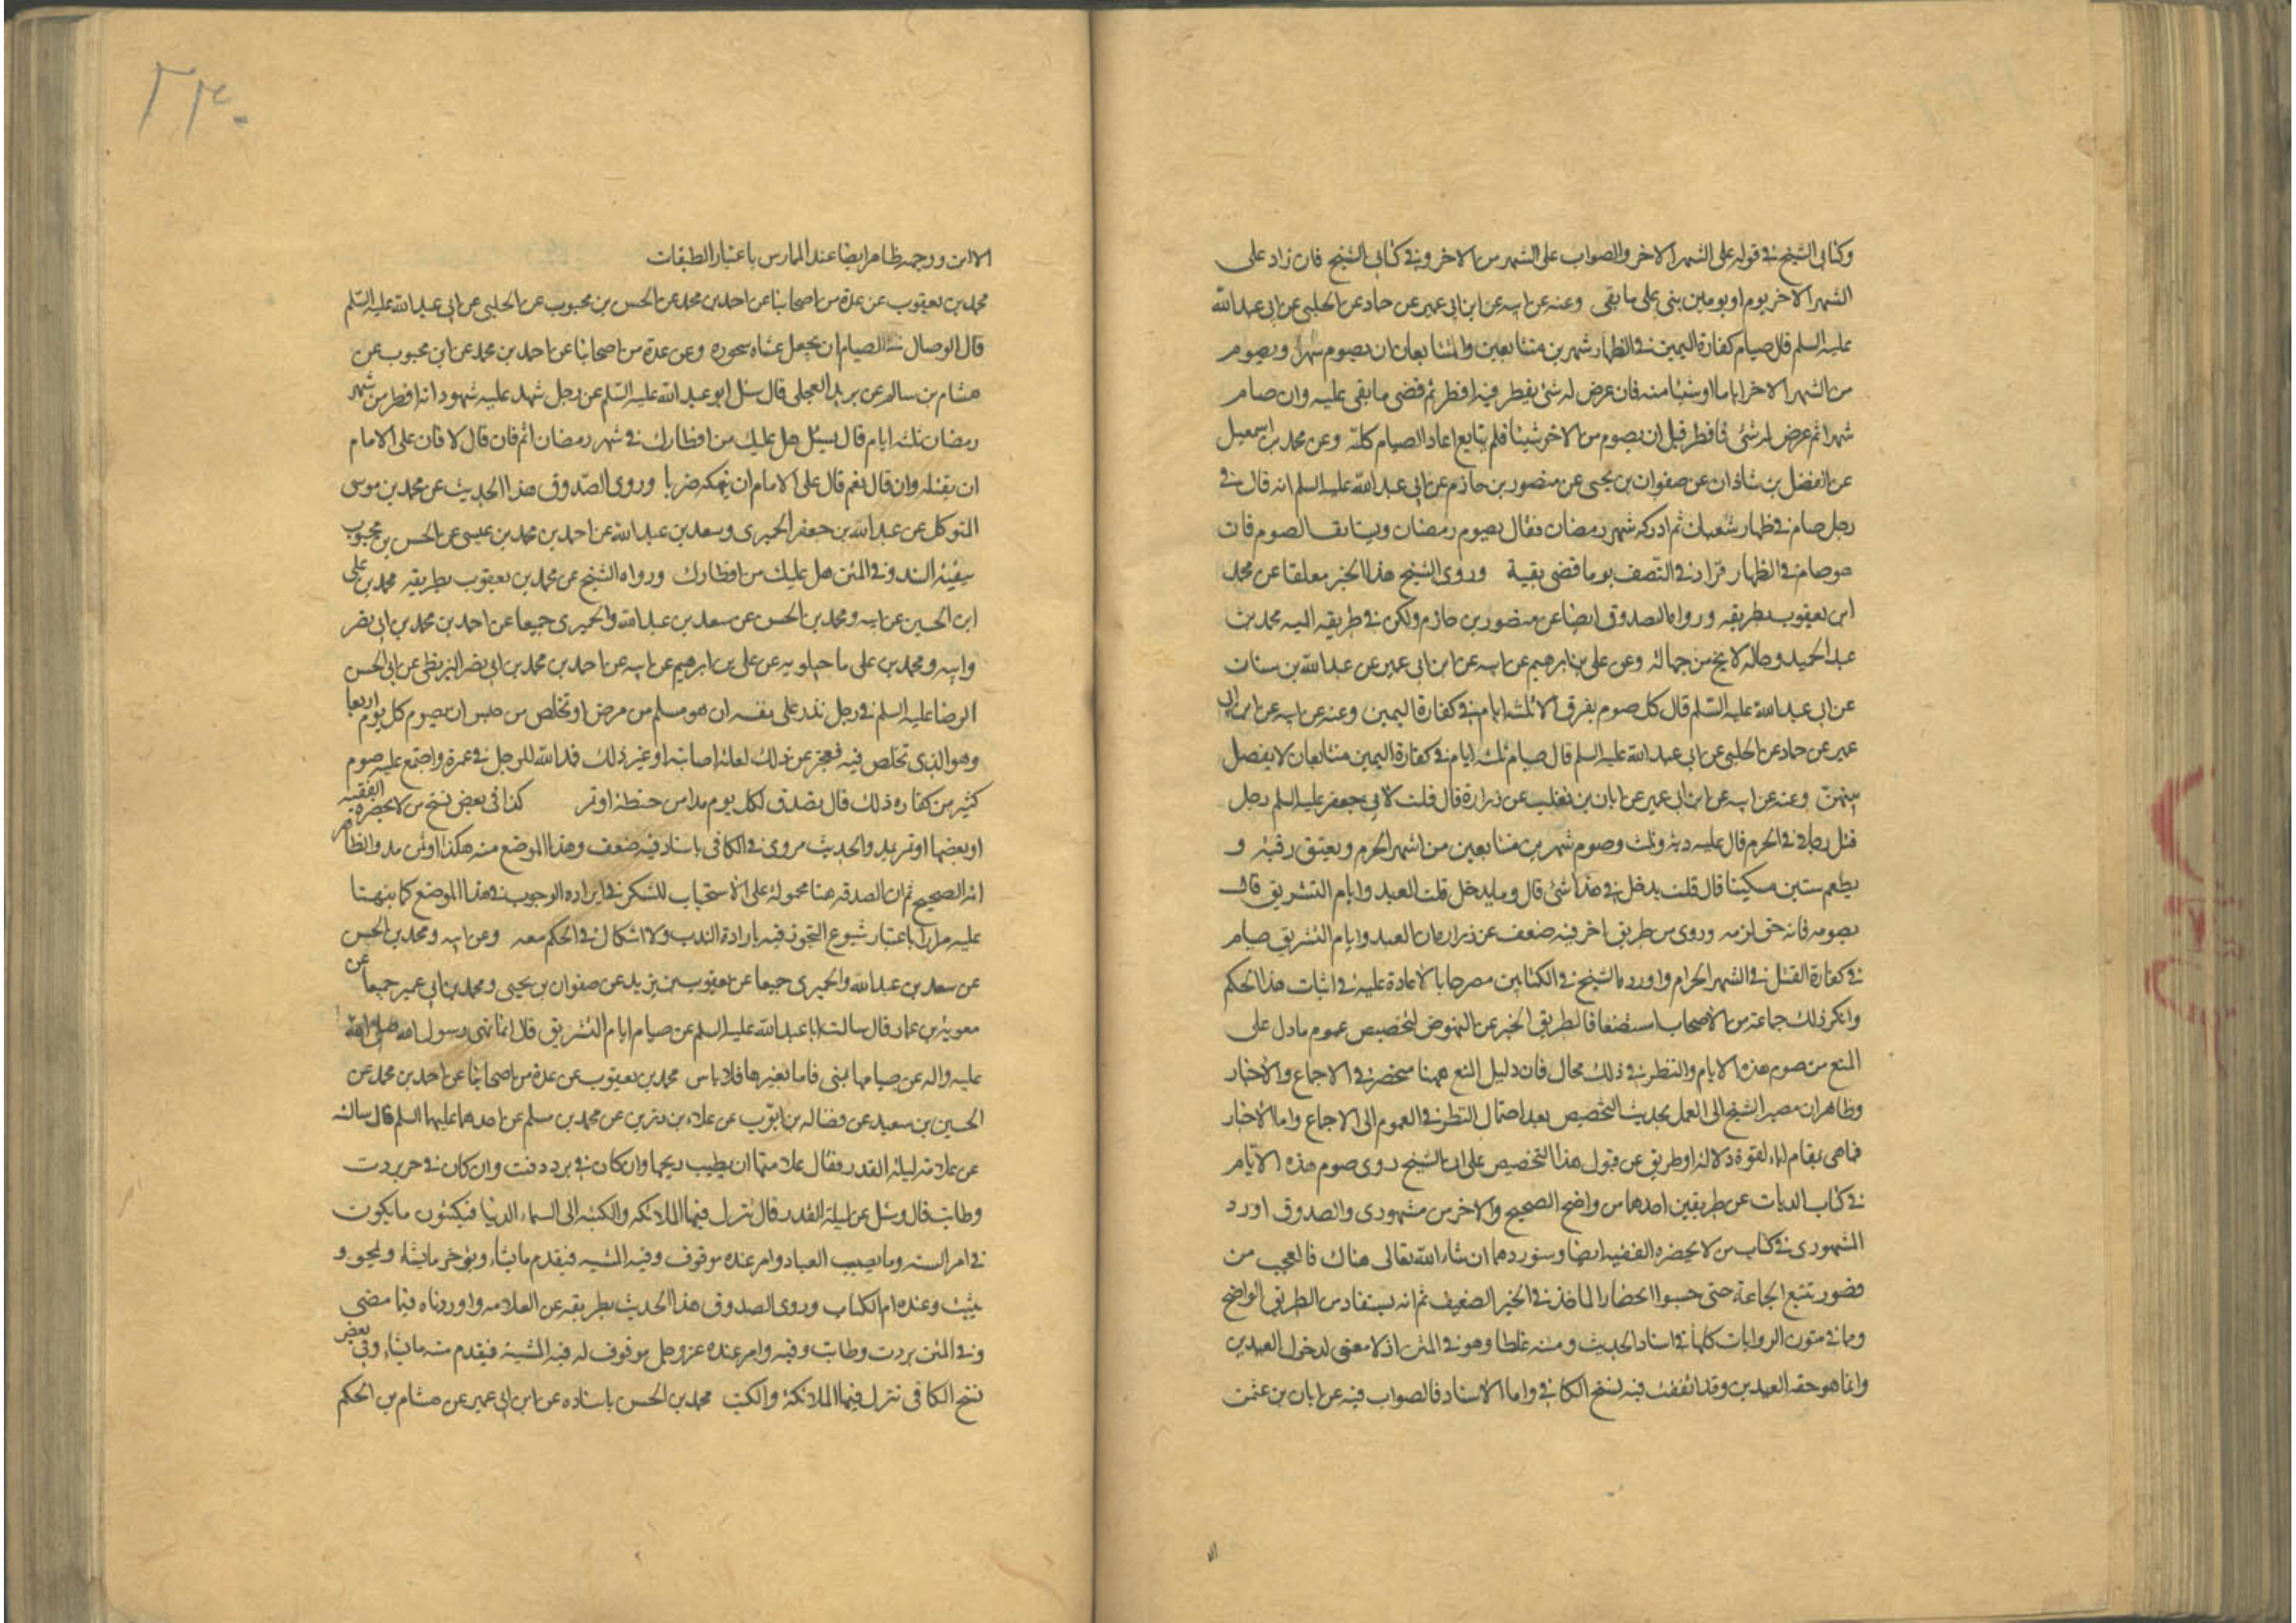 وكتابي الشيخ في قوله على الشهر الاخر والصواب على الشهر من الاخر وفي كتابي الشيخ فان زاد على
الشهر الاخر يوم او يومين بنى على ما بقى وعنه عن ابيه عن ابن ابي عمير عن حماد عن الحلبي عن ابي عبد الله
عليه السلم قال صيام كفارة اليمين في الظهار شهرين متتابعين والتتابع ان يصوم شهرا ويصوم
من الشهر الاخر اياما او شيئا منه فان عرض له شئ يفطر فيه افطر ثم قضى ما بقى عليه وان صام
شهرا ثم عرض له شئ فافطر قبل ان يصوم من الاخر شيئا فلم يتابع اعاد الصيام كله وعن محمد بن اسمعيل
عن الفضل بن شاذان عن صفوان بن يحيى عن منصور بن حازم عن ابي عبد الله عليه السلم انه قال في
رجل صام في ظهار شعبان ثم ادركه شهر رمضان فقال يصوم رمضان ويستانف الصوم فان
هو صام في الظهار فزاد في النصف يوما قضى بقية وروى الشيخ هذا الخبر معلقا عن محمد
ابن يعقوب بطريقه ورواه الصدوق ايضا عن منصور بن حازم ولكن في طريقه اليه محمد بن
عبد الحميد وحاله لا يخ من جهالة وعن علي بن ابرهيم عن ابيه عن ابن ابي عمير عن عبد الله بن سنان
عن ابي عبد الله عليه السلم قال كل صوم يفرق الا ثلثة ايام في كفارة اليمين وعنه عن ابيه عن ابن ابي
عمير عن حماد عن الحلبي عن ابي عبد الله عليه السلم قال صيام ثلثة ايام في كفارة اليمين متتابعات لا يفصل
بينهن وعنه عن ابيه عن ابن ابي عمير عن ابان بن تغلب عن زرارة قال قلت لابي جعفر عليه السلم رجل
قتل رجلا في الحرم قال عليه دية وثلث وصوم شهرين متتابعين من اشهر الحرم ويعتق رقبة و
يطعم ستين مسكينا قال قلت يدخل في هذا شئ قال وما يدخل قلت العيد وايام التشريق قال
يصومه فانه حق لزمه وروى من طريق اخر فيه ضعف عن زرارة ان العيد وايام التشريق صيام
في كفارة القتل في الشهر الحرام واورده الشيخ في الكتابين مصرحا بالاعادة عليه في اثبات هذا الحكم
وانكر ذلك جماعة من الاصحاب استضعافا لطريق الخبر عن النهوض لتخصيص عموم ما دل على
المنع من صوم هذه الايام والنظر في ذلك مجال فان دليل المنع ههنا منحصر في الاجماع والاخبار
وظاهر ان مصير الشيخ الى العمل بحديث التخصيص يبعد احتمال النظر في العموم الى الاجماع واما الاخبار
فما هي بمقام اباء لقوة دلالة او طريق عن قبول هذا التخصيص على ان الشيخ روى صوم هذه الايام
في كتاب الديات عن طريقين احدهما من واضح الصحيح والاخر من مشهورى والصدوق اورد
المشهورى في كتاب من لا يحضره الفقيه ايضا وسنوردهما ان شاء الله تعالى هناك فالعجب من
قصور تتبع الجماعة حتى حسبوا انحصار الماخذ في الخبر الضعيف ثم انه يستفاد من الطريق الواضح
وما في متون الروايات كلها في اسناد الحديث ومتنه غلطا وهو في المتن اذ لا معنى لدخول العيدين
وانما هو حقه العيد بن وقد اتفقت فيه نسخ الكافي واما الاسناد فالصواب فيه عن ابان بن عثمن
الا ان ووجهه ظاهر ايضا عند الممارس باعتبار الطبقات
محمد بن يعقوب عن عدة من اصحابنا عن احمد بن محمد عن الحسن بن محبوب عن الحلبي عن ابي عبد الله عليه السلم
قال الوصال في الصيام ان يجعل عشاه سحوره وعن عدة من اصحابنا عن احمد بن محمد عن ابن محبوب عن
هشام بن سالم عن بريد العجلي قال سئل ابو عبد الله عليه السلم عن رجل شهد عليه شهود انه افطر من شهر
رمضان ثلثة ايام قال يسئل هل عليك من افطارك في شهر رمضان اثم فان قال لا فان على الامام
ان يقتله وان قال نعم قال على الامام ان ينهكه ضربا وروى الصدوق هذا الحديث عن محمد بن موسى
المتوكل عن عبد الله بن جعفر الحميرى وسعد بن عبد الله عن احمد بن محمد بن عيسى عن الحسن بن محبوب
ببقية السند وفي المتن هل عليك من افطارك ورواه الشيخ عن محمد بن يعقوب بطريقه محمد بن علي
ابن الحسين عن ابيه ومحمد بن الحسن عن سعد بن عبد الله والحميرى جميعا عن احمد بن محمد بن ابي نصر
وابيه ومحمد بن علي ماجيلويه عن علي بن ابرهيم عن ابيه عن احمد بن محمد بن ابي نصر البزنطي عن ابي الحسن
الرضا عليه السلم في رجل نذر على نفسه ان هو سلم من مرض او تخلص من حبس ان يصوم كل يوم اربعا
وهو الذي تخلص فيه فعجز عن ذلك لعلة اصابته او غير ذلك فمد الله للرجل في عمره واجتمع عليه صوم
كثير من كفارة ذلك قال تصدق لكل يوم مدا من حنطة او تمر كذا في بعض نسخ من لا يحضره الفقيه
او بعضها او تمر بمد والحديث مروى في الكافي باسناد فيه ضعف وهذا الموضع منه هكذا او ثمن مد والظاهر
انه الصحيح ثم ان الصدقة هنا محمولة على الاستحباب للشك في ايراده الوجوب في هذا الموضع كما نبهنا
عليه مرارا باعتبار شيوع التجوز فيه بارادة الندب ولا اشكال في الحكم معه وعن ابيه ومحمد بن الحسن
عن سعد بن عبد الله والحميرى جميعا عن يعقوب بن يزيد عن صفوان بن يحيى ومحمد بن ابي عمير جميعا عن
معوية بن عمار قال سالت ابا عبد الله عليه السلم عن صيام ايام التشريق قال انما نهى رسول الله صلى الله
عليه واله عن صيامها بمنى فاما بغيرها فلا باس محمد بن يعقوب عن عدة من اصحابنا عن احمد بن محمد عن
الحسين بن سعيد عن فضالة بن ايوب عن علاء بن رزين عن محمد بن مسلم عن احدهما عليهما السلم قال سالته
عن علامة ليلة القدر فقال علامتها ان يطيب ريحها وان كان في برد دفئت وان كان في حر بردت
وطابت قال وسئل عن ليلة القدر قال تنزل فيها الملائكة والكتبة الى السماء الدنيا فيكتبون ما يكون
في امر السنة وما يصيب العباد وامر عنده موقوف وفيه المشية فيقدم ما يشاء ويؤخر ما يشاء ويمحو و
يثبت وعنده ام الكتاب وروى الصدوق هذا الحديث بطريقه عن العلا مه واوردناه فيما مضى
وفي المتن بردت وطابت وفيه وامر عنده عز وجل موقوف له فيه المشية فيقدم منه ما يشاء وفي بعض
نسخ الكافي تنزل فيها الملائكة والكتب محمد بن الحسن باسناده عن ابن ابي عمير عن هشام بن الحكم